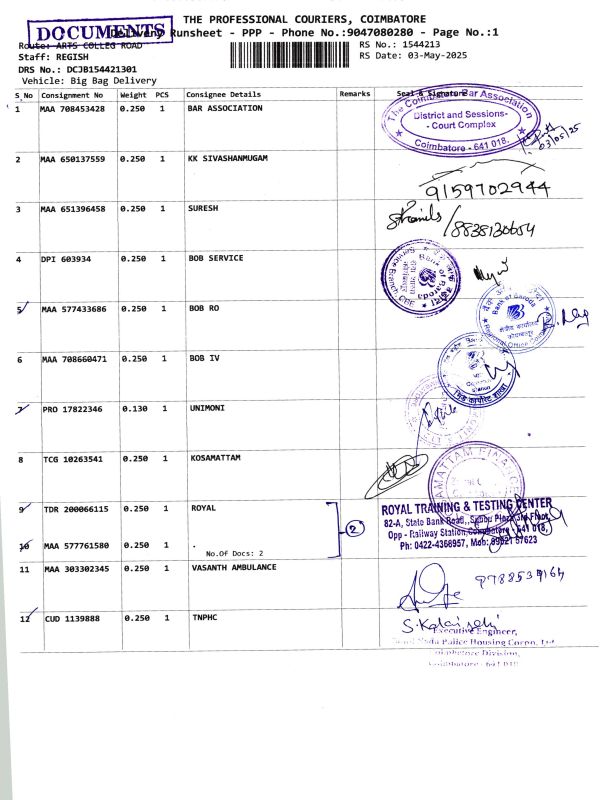 THE PROFESSIONAL COURIERS, COIMBATORE
DOCUMENTS
Delivery Runsheet - PPP - Phone No.:9047080280 - Page No.:1
Route: ARTS COLLEG ROAD
RS No.: 1544213
Staff: REGISH
RS Date: 03-May-2025
DRS No.: DCJB154421301
Vehicle: Big Bag Delivery
S No Consignment No Weight PCS Consignee Details Remarks Seal & Signature
1 MAA 708453428 0.250 1 BAR ASSOCIATION
The Coimbatore Bar Association
District and Sessions-
- Court Complex
Coimbatore - 641 018.
03/05/25
2 MAA 650137559 0.250 1 KK SIVASHANMUGAM
9159702944
3 MAA 651396458 0.250 1 SURESH
/8838130654
4 DPI 603934 0.250 1 BOB SERVICE
Bank of Baroda
Service Branch, CBE
5 MAA 577433686 0.250 1 BOB RO
Bank of Baroda
6 MAA 708660471 0.250 1 BOB IV
7 PRO 17822346 0.130 1 UNIMONI
8 TCG 10263541 0.250 1 KOSAMATTAM
9 TDR 200066115 0.250 1 ROYAL
2
ROYAL TRAINING & TESTING CENTER
82-A, State Bank Road, 3rd Floor,
Opp - Railway Station, Coimbatore - 641 018,
Ph: 0422-4368957, Mob: 99521 57623
10 MAA 577761580 0.250 1 .
No.Of Docs: 2
11 MAA 303302345 0.250 1 VASANTH AMBULANCE
12 CUD 1139888 0.250 1 TNPHC
Executive Engineer,
Tamil Nadu Police Housing Corpn. Ltd
Coimbatore Division,
Coimbatore - 641 018